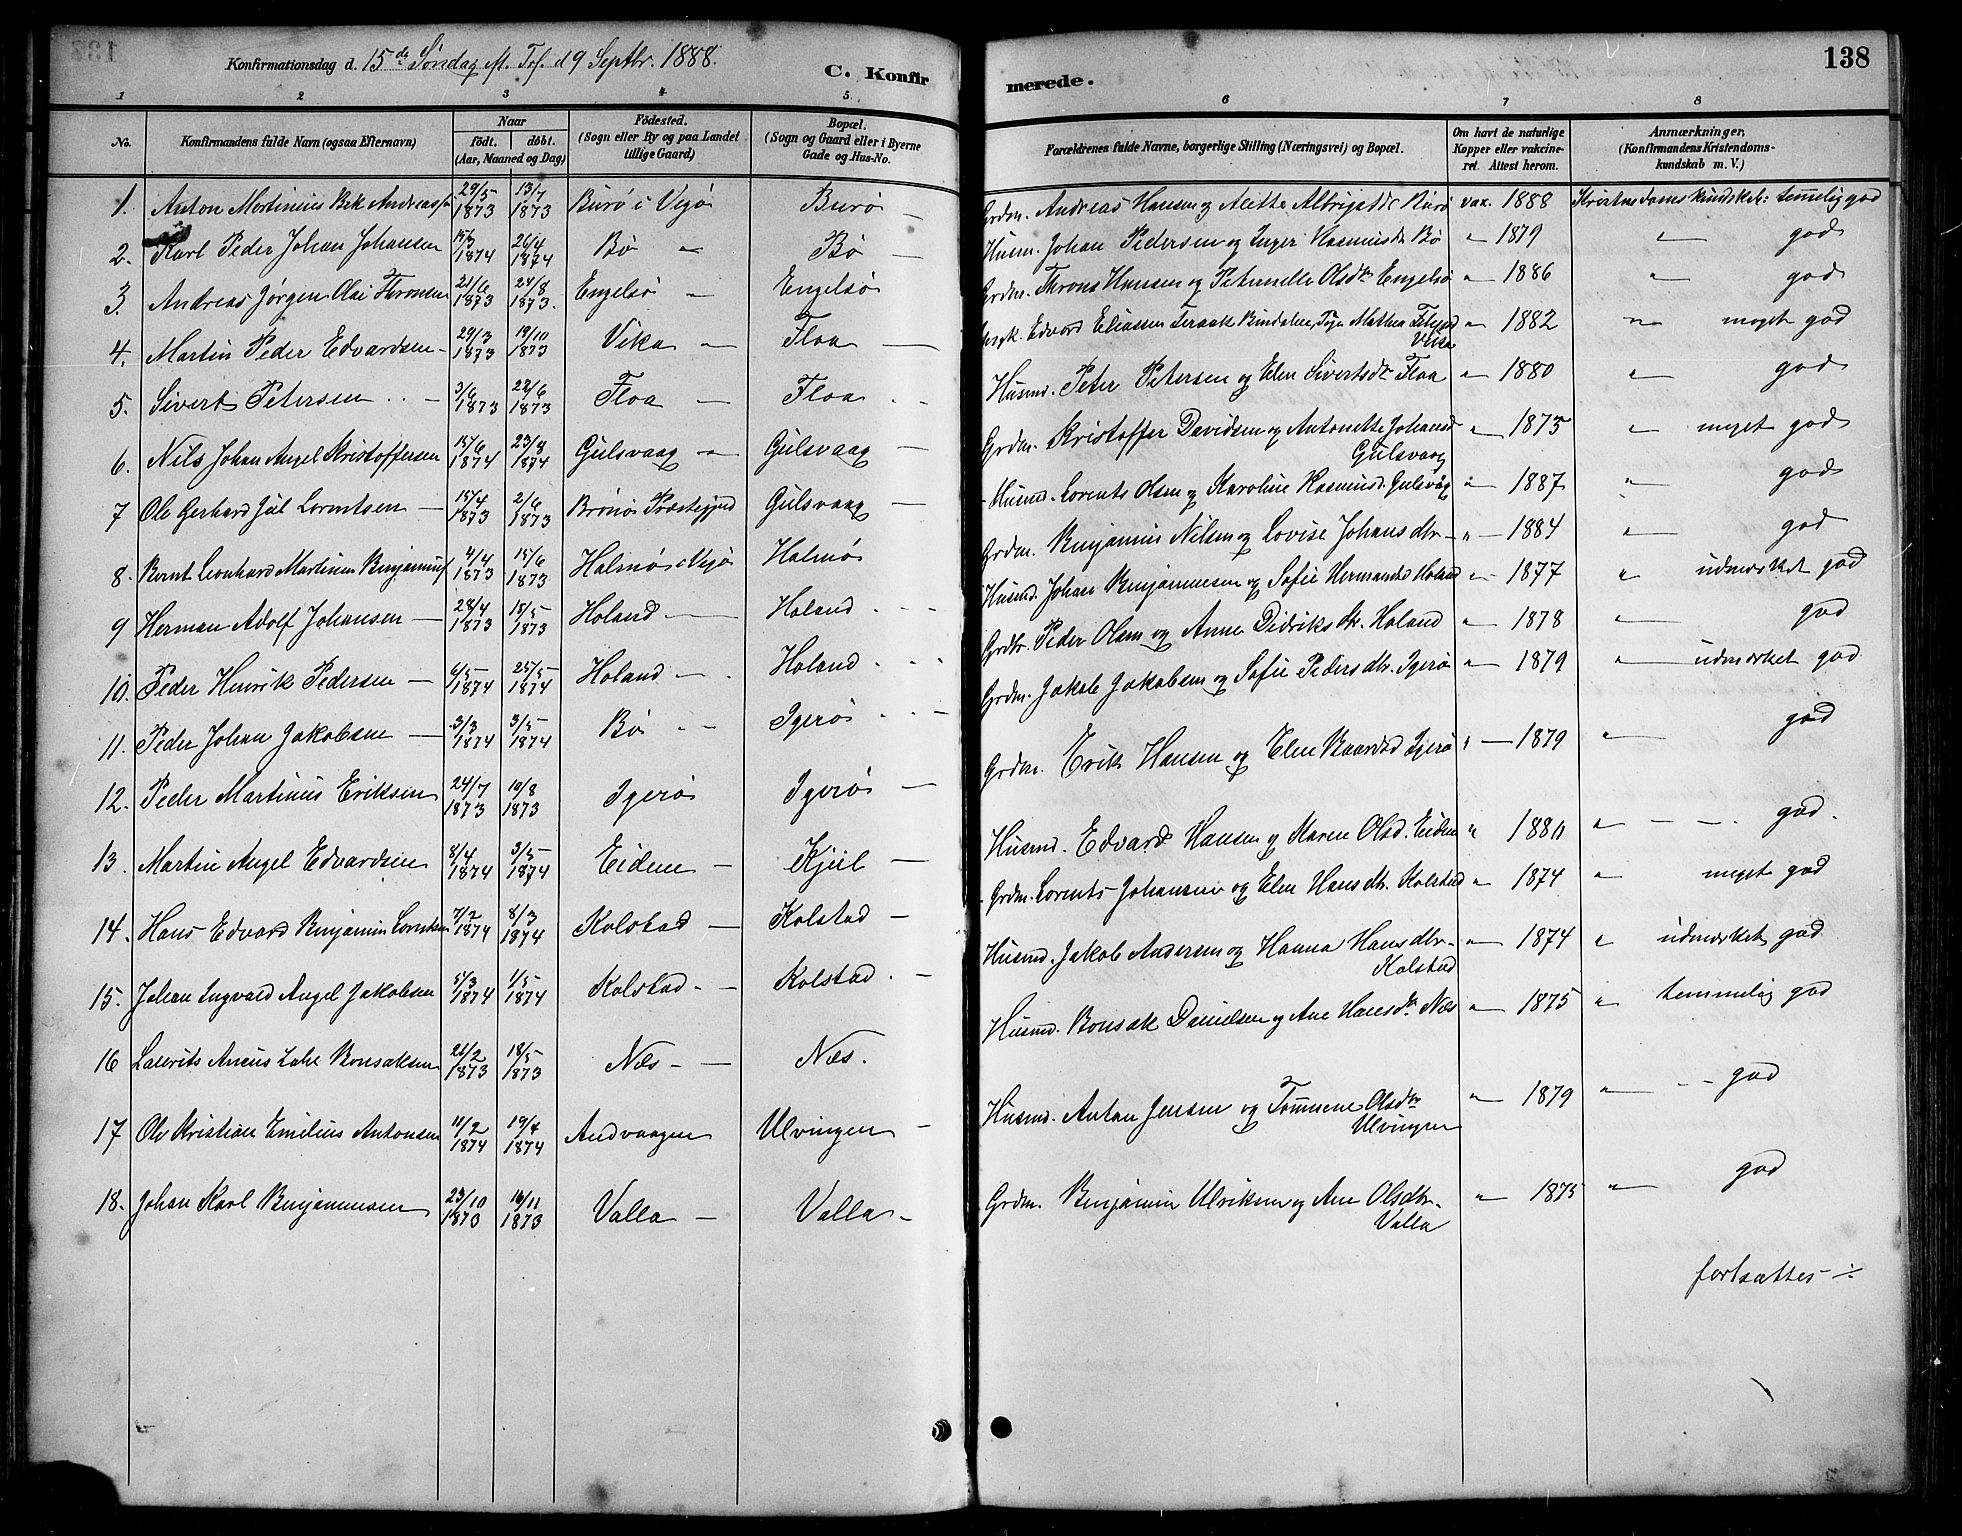 Konfirmationsdag d. 15de Søndag eft. Tref. d 9 Septbr. 1888.
C. Konfirmerede.
138
1 2 3 4 5 6 7 8
No.
Konfirmandens fulde Navn (ogsaa Efternavn)
Naar
födt. döbt.
(Aar, Maaned og Dag)
Födested.
(Sogn eller By og paa Landet
tillige Gaard)
Bopæl.
(Sogn og Gaard eller i Byerne
Gade og Hus-No.
Forældrenes fulde Navne, borgerlige Stilling (Næringsvei) og Bopæl.
Om havt de naturlige
Kopper eller vakcine-
ret. Attest herom.
Anmærkninger,
(Konfirmandens Kristendoms-
kundskab m. V.)
1. Anton Martinius Bek Andreass 29/5 1873 13/7 1873 Burø i Vejø Burø — Grdm. Andreas Hansen og Burø vax. 1888 Kristendomskundskab: temelig god
2. Karl Peder Johan Johansen 15/3 1874 26/4 1874 Bø " Bø — Husm. Johan Pedersen og Inger Rasmusdr Bø " 1879 " god
3. Andreas Jørgen Olai Thronsen 21/6 1873 24/8 1873. Engelsø — Engelsø Grdm. Throns Hansen og Peternelle Olsdtr Engelsø " 1886 " god
4. Martin Peder Edvardsen 29/3 1873 19/10 1873 Vika — Floa — Edvard Eliassen Bindalen, Mathea " 1882 " meget god
Vika
5. Sivert Petersen 3/6 1873 22/6 1873 Floa — Floa Husmd. Peter Petersen og Elen Sivertsdr Floa " 1880 " god
6. Nils Johan Angel Kristoffersen 15/6 1874 23/8 1874 Gulsvaag — Gulsvaag — Grdm. Kristoffer Davidsen og Antonette Johansd " 1875 " meget god
Gulsvaag
7 Ole Gerhard Jül Lorentsen 15/4 1873 2/6 1873 Brønø Præstegjeld Gulsvaag — Husmd. Lorents Olsen og Karoline Rasmusd. Gulsvåg " 1887 " god
8. Bernt Leonhard Martinus Benjamins 4/4 1873 15/6 1873 Halmø i Vejø Halmø Grdm. Benjamin Nilsen og Lovise Johansdtr — " — 1884 " god
9 Herman Adolf Johansen 28/4 1873 18/5 1873 Holand — Holand Husmd. Johan Benjaminsen og Sofie Hermansd Holand " 1877 " udmerket god
10. Peder Henrik Pedersen 6/5 1874 25/5 1874 Holand — Holand Grdbr. Peder Olsen og Anne Didriksdtr. Holand " 1878 " god
11. Peder Johan Jakobsen 3/3 1874 3/5 1874 Bø Igerø Grdm. Jakob Jakobsen og Sofie Pedersdtr. Igerø " 1879 " udmerket god
12. Peder Martinus Eriksen 24/7 1873 10/8 1873 Igerø Igerø — Grdm. Erik Hansen og Elen Baardsd Igerø " — 1879 " god
13. Martin Angel Edvardsen 8/4 1874 3/5 1874 Eidem — Kjul — Husmd. Edvard Hansen og Maren Olsd. Eidem " 1880 " god.
14. Hans Edvard Benjamin Lorentsen 7/2 1874 8/3 1874 Kolstad — Kolstad — Grdm. Lorents Johansen og Elen Hansdtr. Kolstad " 1874 " meget god
15. Johan Ingvard Angel Jakobsen 5/3 1874 1/5 1874 Kolstad — Kolstad — Husmd. Jakob Andersen og Hanna Hansdtr — 1874 " udmerket god
Kolstad
16 Laurits Lahl Bonsaksen 21/2 1873 18/5 1873 Næs — Næs. Husmd. Bonsak Danielsen og Ane Hansdr Næs " 1875 " temmelig god
17 Ole Kristian Emilius Antonsen 11/2 1874 19/4 1874 Andvaagen Ulvingen — Husmd. Anton Jensen og Tommene Olsdtr " 1879 " god
Ulvingen
18. Johan Karl Benjaminsen 23/10 1873 16/11 1873 Valla — Valla — Grdm. Benjamin Ulriksen og Ane Olsdtr. " 1875 " god
Valla
fortsættes ÷